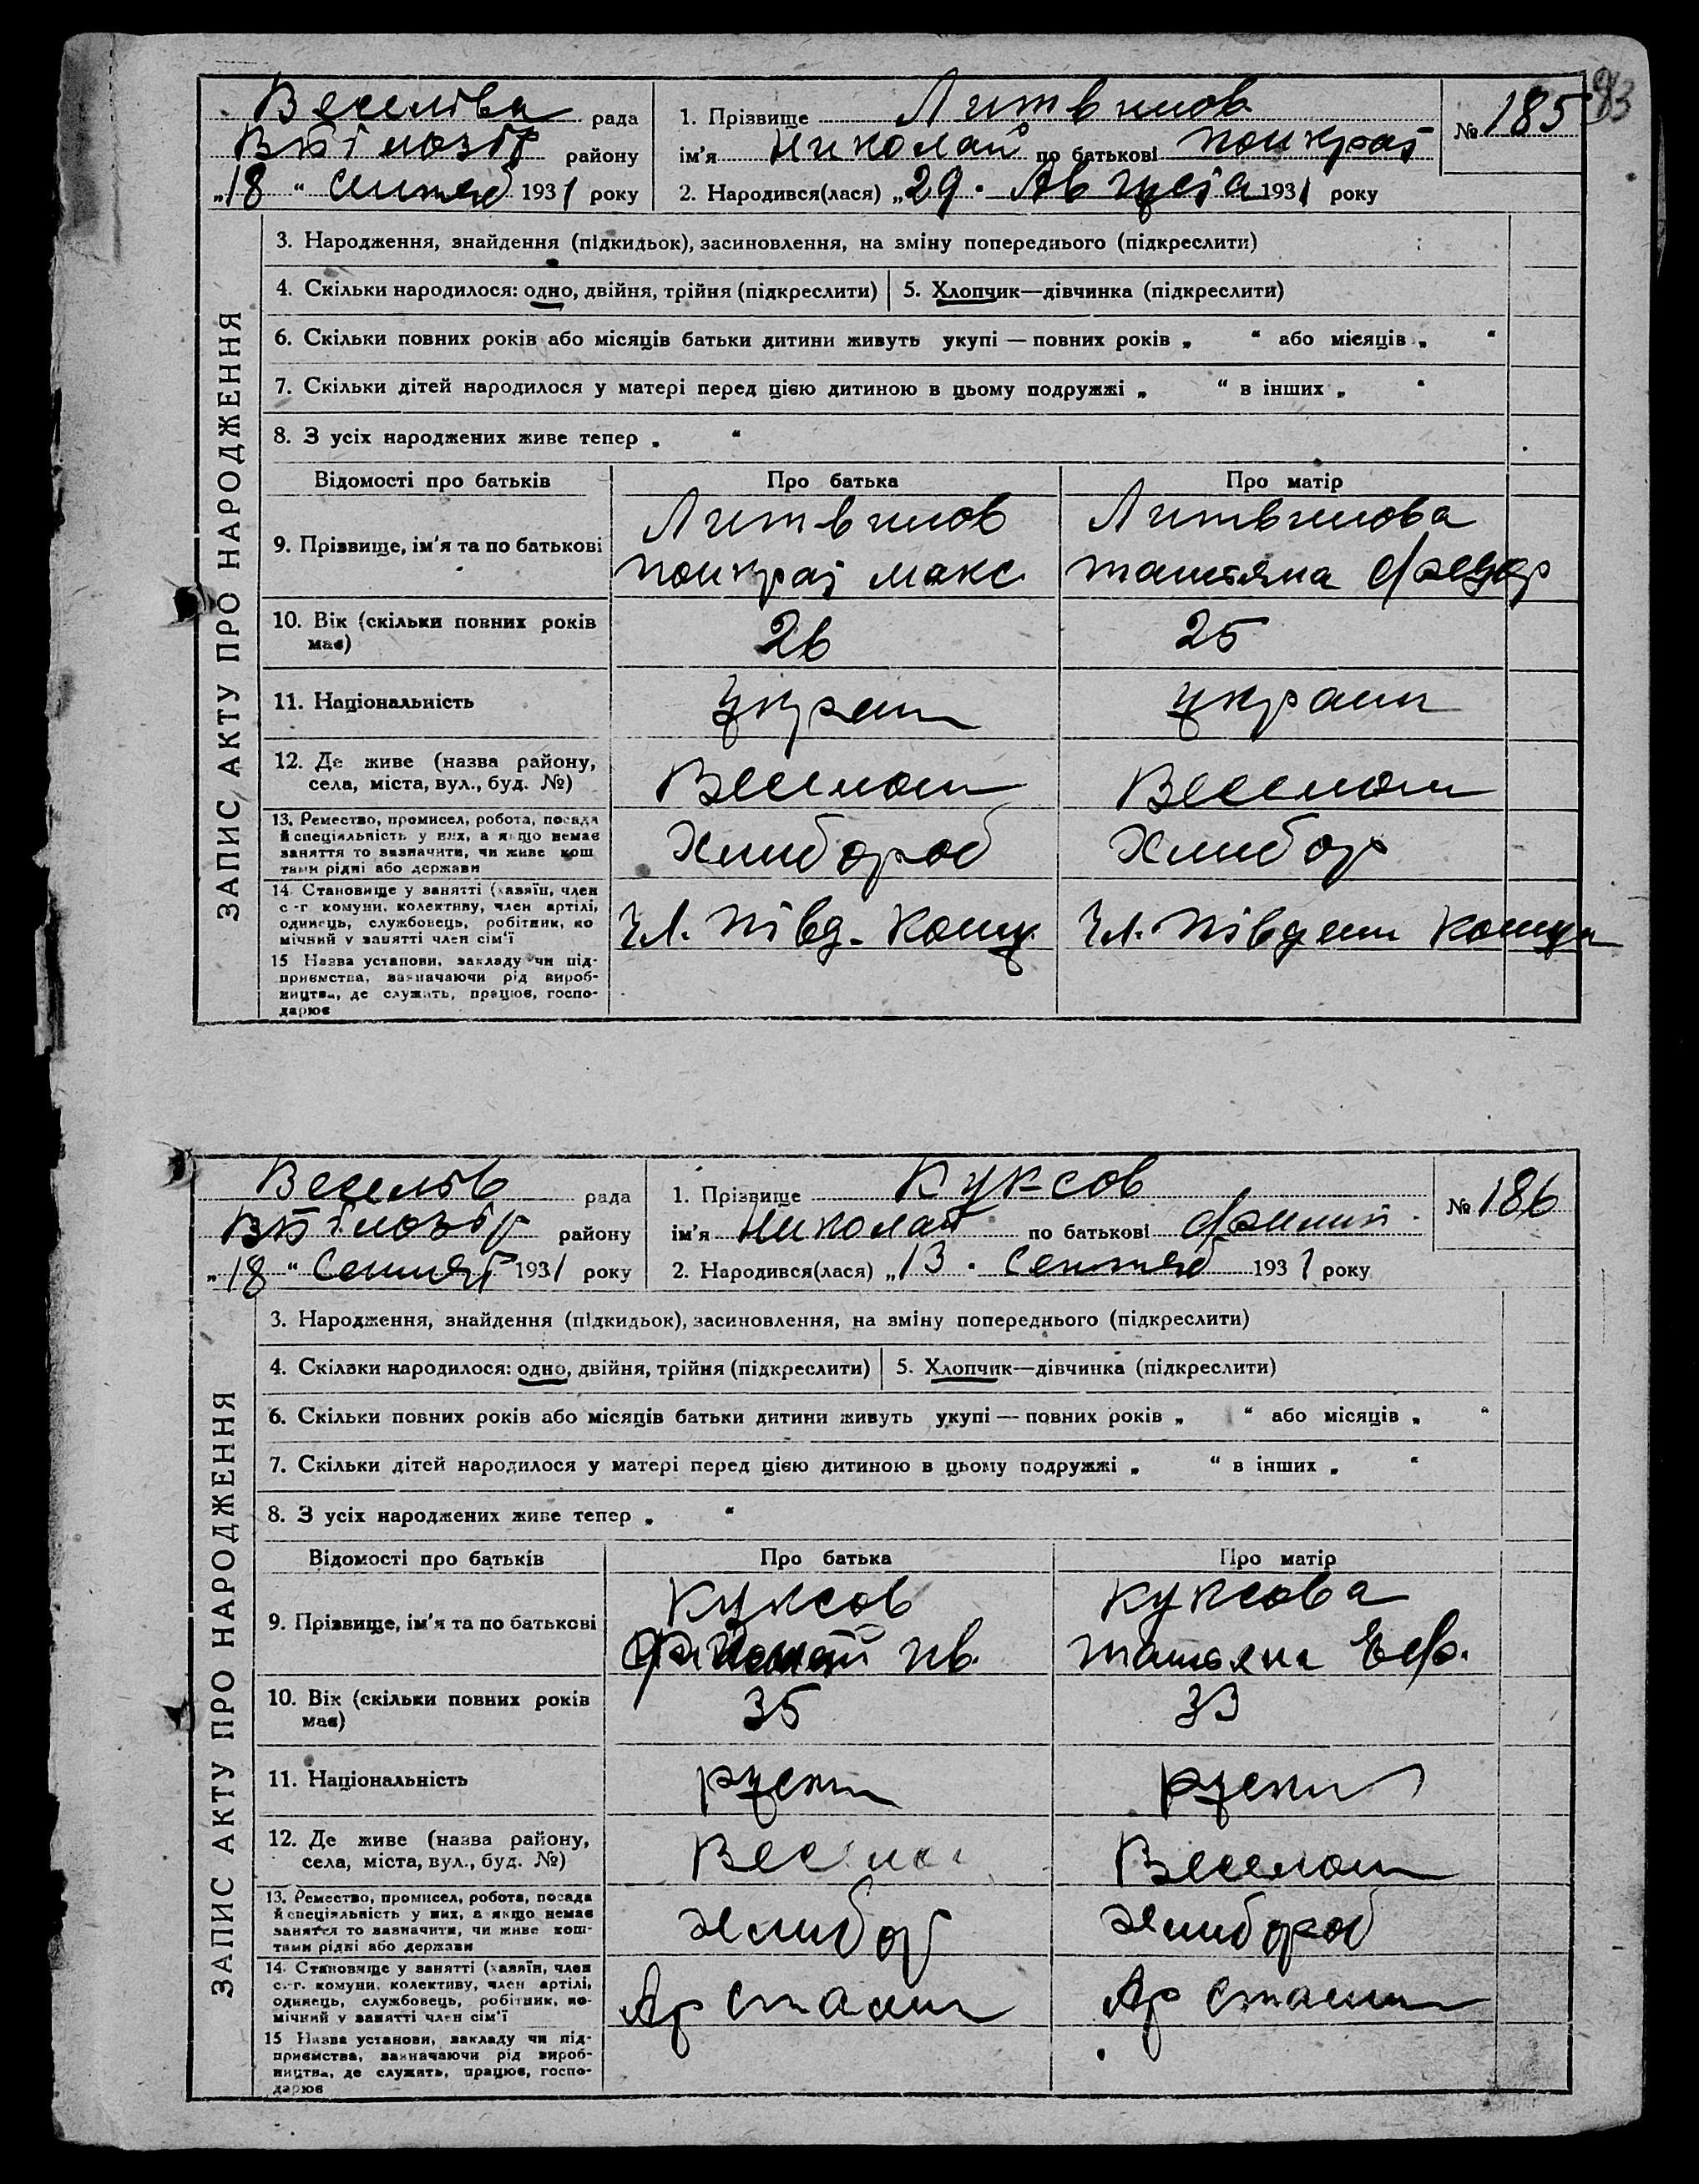 93
Веселівa рада
В Білозір району
„18 “ Сентяб 1931 року
1. Прізвище Литвинов
ім'я Николай по батькові Понкрат
2. Народився(лася) „29. Августа 1931 року
№ 185
ЗАПИС АКТУ ПРО НАРОДЖЕННЯ
3. Народження, знайдення (підкидьок), засиновлення, на зміну попереднього (підкреслити)
4. Скільки народилося: одно, двійня, трійня (підкреслити) 5. Хлопчик—дівчинка (підкреслити)
6. Скільки повних років або місяців батьки дитини живуть укупі — повних років „ “ або місяців „ “
7. Скільки дітей народилося у матері перед цією дитиною в цьому подружжі „ “ в інших „ “
8. З усіх народжених живе тепер „ “
Відомості про батьків Про батька Про матір
9. Прізвище, ім'я та по батькові
Литвинов
Понкрат Макс
Литвинова
Татьяна Федор
10. Вік (скільки повних років
має)
26 25
11. Національність
украин украин
12. Де живе (назва району,
села, міста, вул., буд. №)
Веселом Веселом
13. Ремество, промисел, робота, посада
й спеціяльність у них, а якщо немає
заняття то зазначити, чи живе кош
тами рідні або держави
Хлибороб Хлибор
14. Становище у занятті (хазяїн, член
с.-г. комуни, колективу, член артілі,
одинець, службовець, робітник, по
мічний у занятті член сім'ї
Чл. Півд. Комун Чл. Півден Комуна
15 Назва установи, закладу чи під-
приємства, зазначаючи рід вироб-
ництва, де служить, працює, госпо-
дарює
Веселів рада
В Білозір району
„18 “ Сентяб 1931 року
1. Прізвище Куксов
ім'я Николай по батькові
2. Народився(лася) „13. Сентяб 1931 року
№ 186
ЗАПИС АКТУ ПРО НАРОДЖЕННЯ
3. Народження, знайдення (підкидьок), засиновлення, на зміну попереднього (підкреслити)
4. Скілзки народилося: одно, двійня, трійня (підкреслити) 5. Хлопчик—дівчинка (підкреслити)
6. Скільки повних років або місяців батьки дитини живуть укупі — повних років „ “ або місяців „ “
7. Скільки дітей народилося у матері перед цією дитиною в цьому подружжі „ “ в інших „ “
8. З усіх народжених живе тепер „ “
Відомості про батьків Про батька Про матір
9. Прізвище, ім'я та по батькові
Куксов
Ив.
Куксова
Татьяна Еф.
10. Вік (скільки повних років
має)
35 33
11. Національність
руски руски
12. Де живе (назва району,
села, міста, вул., буд. №)
Весело Веселом
13. Ремество, промисел, робота, посада
й спеціяльність у них, а якщо немає
заняття то зазначити, чи живе кош-
тами рідні або держави
Хлибор Хлибороб
14. Становище у занятті (хазяїн, член
с.-г. комуни, колективу, член артілі,
одинець, службовець, робітник, по-
мічний у занятті член сім'ї
Ар Сталин Ар Сталин
15 Назва установи, закладу чи під-
приємства, зазначаючи рід вироб-
ництва, де служить, працює, госпо-
дарює